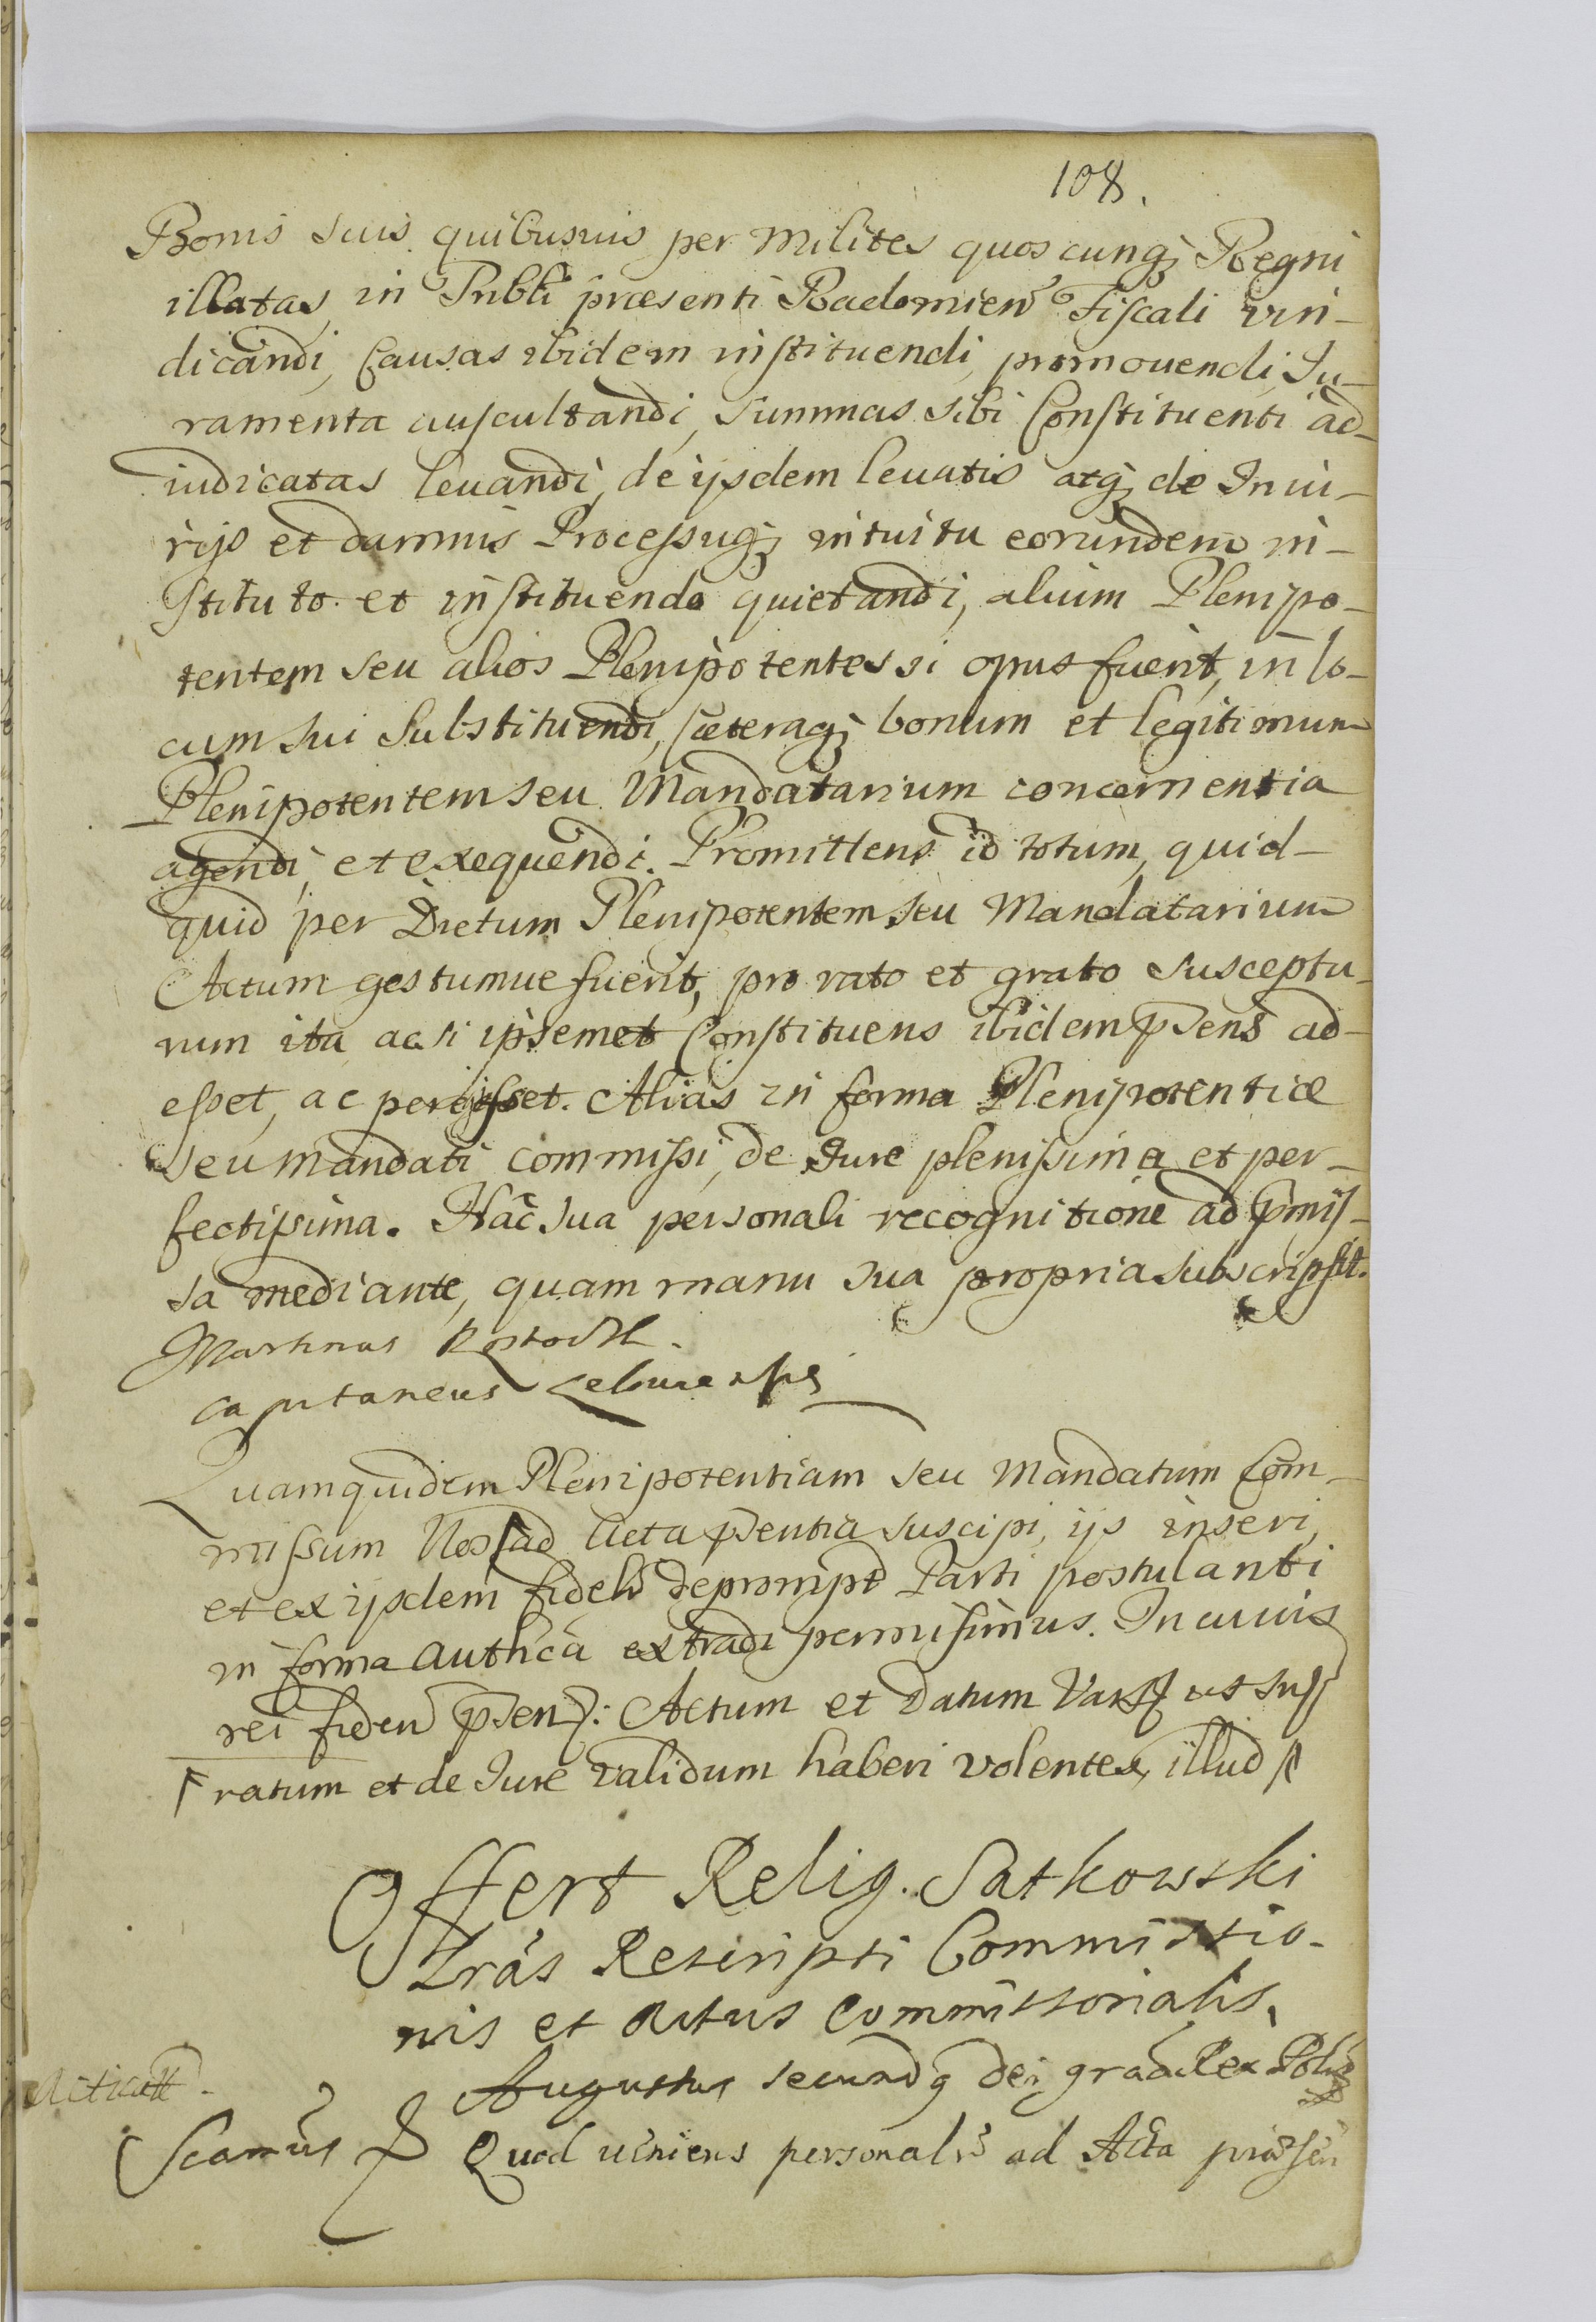 108.
Bonis suis quibusvis per Milites quoscunq; Regni
illatas, in Tribli præsenti Radomien Fiscali vin-
dicandi, Causas ibidem instituendi, promovendi, Ju-
ramenta auscultandi, summas sibi Constituenti ad-
iudicatas levandi, de ijsdem levatis atq; de Iniu-
rijs et damnis Processuq; intuitu eorundem in-
stituto et instituendo quietandi, alium Plenipo-
tentem seu alios Plenipotentes si opus fuerit, in lo-
cum sui Substituendi, Cæteraq; bonum et legitimum
Plenipotentem seu Mandatarium concernentia
agendi, et exequendi. Promittens id totum, quid-
quid per Dictum Plenipotentem seu Mandatarium
Actum gestumve fuerit, pro rato et grato susceptu-
rum ita ac si ipsemet Constituens ibidem psens ad-
esset, ac peregisset. Alias in forma Plenipotentiæ
seu Mandati commissi, de Jure plenissima et per-
fectissima. Hac sua personali recognitione ad pmis-
sa mediante, quam manu sua propria subscripsit.
Martinus
capitaneus
Quamquidem Plenipotentiam seu Mandatum Com-
missum Nos ad Acta psentia suscipi, ijs inseri,
et ex ijsdem fideli deprompt Parti postulanti
in forma authca extradi permisimus. In cuius
rei fidem psen: Actum et Datum Vars ut sup
ratum et de Jure validum haberi volentes, illud
Offert Relig. Satkowski
Lras Rescripti Commissio-
nis et Actus Commissorialis.
Acticatt.
Augustus secundq dei gra Rex Polæ
Quod veniens personalr ad Acta præsen